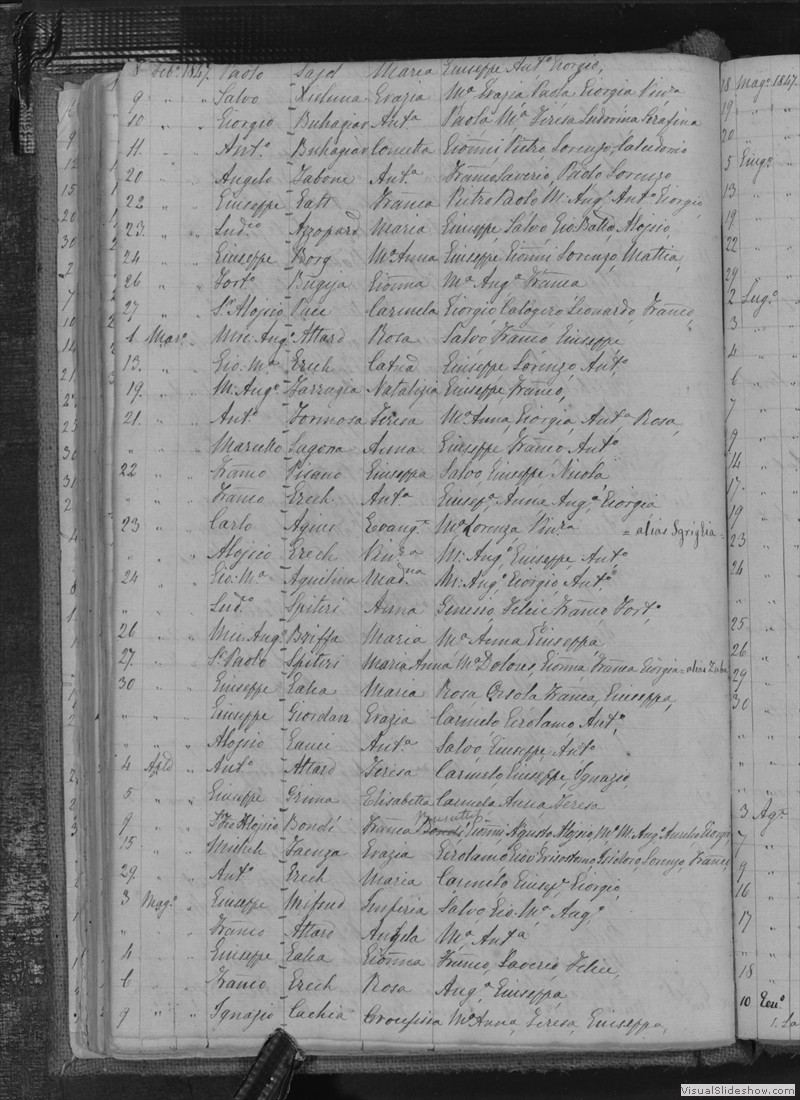 8 Feb.º 1847. Paolo Said Maria Giuseppe Ant.º Giorgio,
9 " " Salvo Xicluna Grazia M.ª Grazia Paola Giorgia Vin.za
10 " " Giorgio Buhagiar Ant.a Paola M.ª Teresa Ludovica Serafina
11. " " Ant.º Buhagiar Concetta Gionni Pietro Lorenzo, Calcidonio
20 " " Angelo Zabone Ant.a Franco Saverio, Paolo Lorenzo
22 " " Giuseppe Galt Franca Pietro Paolo M: Ang.º Ant.º Giorgio
23. " " Lud.co Azzopard Maria Giuseppe Salvo Gio Batta, Alojsio,
24 " " Giuseppe Borg M.ª Anna Giuseppe Gionni Lorenzo, Mattia,
26 " " Fort.º Bugeja Gionna M.ª Ang.ª Franca
27 " " S.r Alojsio Pace Carmela Giorgio Calogero Leonardo, Franco,
1 Mar.º " Mic. Ang.º Attard Rosa Salvo Franco Giuseppe
13. " " Gio: M.ª Grech Catna Giuseppe Lorenzo Ant.º
19. " " M: Ang.º Farrugia Natalizia Giuseppe Franco,
21. " " Ant.º Formosa Teresa M.ª Anna, Giorgia, Ant.a Rosa,
" " " Marcello Sagona Anna Giuseppe Franco Ant.º
22 " " Franco Pisano Giuseppa Salvo Giuseppe, Nicola
" " " Franco Grech Ant.a Giusep.ª Anna Ang.ª Giorgia
23 " " Carlo Agius Evang.a M.ª Lorenza, Vin.za = alias Sgriglia =
" " " Alojsio Grech Vin.za M: Ang.º Giuseppe Ant.º
24 " " Gio: M.ª Aquilina Mad.na M: Ang.º Giorgio, Ant.º
" " " Lud.º Spiteri Anna Genesio, Felice Franco, Fort.º
26 " " Mic. Ang.º Briffa Maria M.ª Anna Giuseppa
27. " " S.r Paolo Spiteri Maria Anna M.ª Dolores, Gionna, Franca Giorgia = alias Zuba
30 " " Giuseppe Galea Maria Rosa Orsola Franca, Giuseppa,
" " " Giuseppe Giordan Grazia Carmelo Girolamo Ant.º
" " " Alojsio Gauci Ant.a Salvo, Giuseppe, Ant.º
4 Aple " Ant.º Attard Teresa Carmelo, Giuseppe Ignazio,
5 " " Giuseppe Grima Elisabetta Carmela Anna, Teresa
9 " " Alojsio Bondí Franca Gionni, Agusto Alojsio, M.ª M: Ang.º Giorgio
15 " " Michele Faenza Grazia Girolamo Giov Grisostomo, Isidoro Lorenzo, Franco,
29. " " Ant.º Grech Maria Carmelo Giusep.e Giorgio,
3 Mag.º " Giuseppe Mifsud Imperia Salvo Gio: M.ª Ang.º
" " " Franco Attard Angela M.ª Ant.a
4 " " Giuseppe Galea Gionna Franco, Saverio Felice,
6 " " Franco Grech Rosa Ang.ª Giuseppa
9 " " Ignazio Cachia Crocifissa M.ª Anna, Teresa, Giuseppa,
18 Mag.º 1847.
19 "
20 "
5 Giug.º
13 "
19. "
22 "
29 "
2 Lug.º
3 "
4 "
6 "
7 "
9 "
14 "
17. "
19 "
23 "
24 "
" "
25 "
26 "
29 "
30 "
3 Ag.º
7 "
9 "
16 "
17 "
18 "
10 Gen.º
VisualSlideshow.com